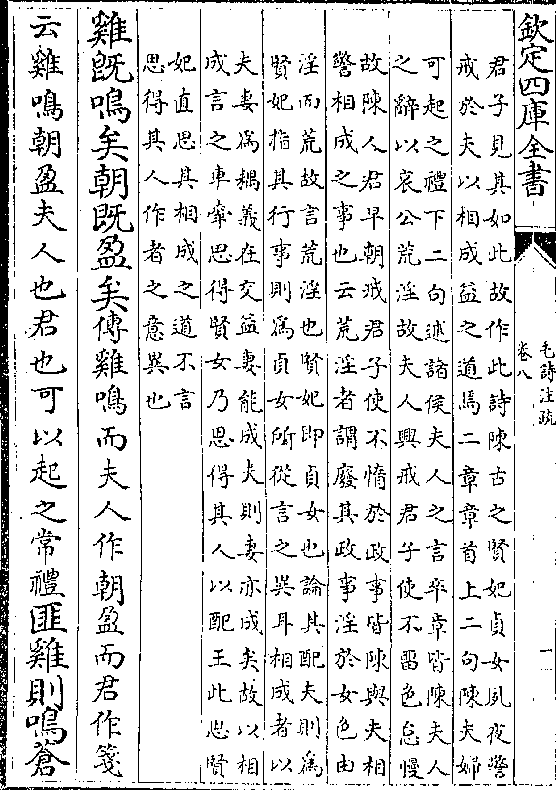 欽定四庫全書
毛詩注疏
卷八
一
君子見其如此故作此詩陳古之賢妃貞女夙夜警
戒於夫以相成益之道焉二章章首上二句陳夫婦
可起之禮下二句述諸侯夫人之言卒章皆陳夫人
之辭以哀公荒淫故夫人興戒君子使不留色怠慢
故陳人君早朝戒君子使不惰於政事皆陳與夫相
警相成之事也云荒淫者謂廢其政事淫於女色由
淫而荒故言荒淫也賢妃即貞女也論其配夫則為
賢妃指其行事則為貞女所從言之異耳相成者以
夫妻為耦義在交益妻能成夫則妻亦成矣故以相
成言之車舝思得賢女乃思得其人以配王此思賢
妃直思其相成之道不言
思得其人作者之意異也
雞既鳴矣朝既盈矣傳雞鳴而夫人作朝盈而君作箋
云雞鳴朝盈夫人也君也可以起之常禮匪雞則鳴蒼